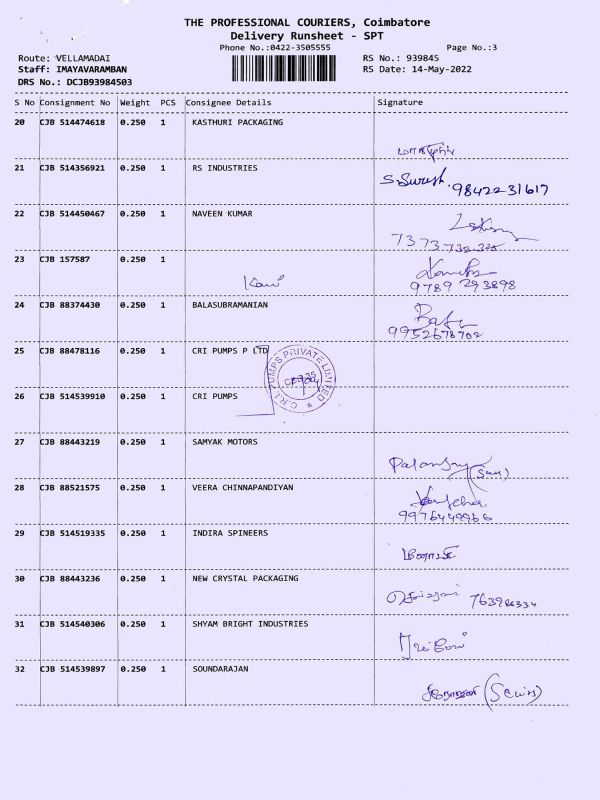 THE PROFESSIONAL COURIERS, Coimbatore
Delivery Runsheet - SPT
Phone No.:0422-3505555 Page No.:3
Route: VELLAMADAI RS No.: 939845
Staff: IMAYAVARAMBAN RS Date: 14-May-2022
DRS No.: DCJB93984503
S No Consignment No Weight PCS Consignee Details Signature
20 CJB 514474618 0.250 1 KASTHURI PACKAGING
21 CJB 514356921 0.250 1 RS INDUSTRIES
S.Suresh 9842231617
22 CJB 514450467 0.250 1 NAVEEN KUMAR
23 CJB 157587 0.250 1
9789 293898
24 CJB 88374430 0.250 1 BALASUBRAMANIAN
9952678702
25 CJB 88478116 0.250 1 CRI PUMPS P LTD
C.R.I. PUMPS PRIVATE LIMITED
26 CJB 514539910 0.250 1 CRI PUMPS
27 CJB 88443219 0.250 1 SAMYAK MOTORS
28 CJB 88521575 0.250 1 VEERA CHINNAPANDIYAN
29 CJB 514519335 0.250 1 INDIRA SPINEERS
30 CJB 88443236 0.250 1 NEW CRYSTAL PACKAGING
31 CJB 514540306 0.250 1 SHYAM BRIGHT INDUSTRIES
32 CJB 514539897 0.250 1 SOUNDARAJAN